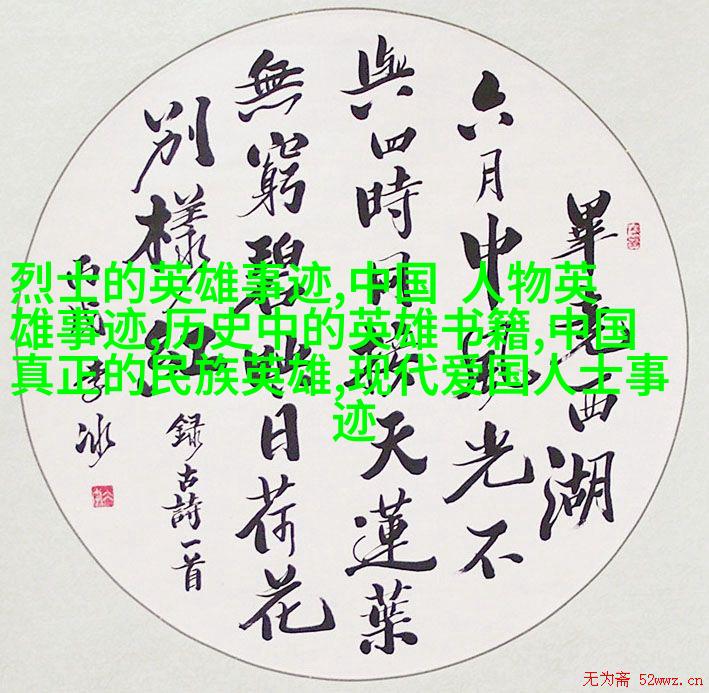 畢竟西湖
六月中風光不
與四時同接天蓮葉
無窮碧映日荷花
別樣紅
錄古詩一首
李冰
烈士的英雄事迹,中国 人物英
雄事迹,历史中的英雄书籍,中国
真正的民族英雄,现代爱国人士事
迹
无为斋 52wwz.cn